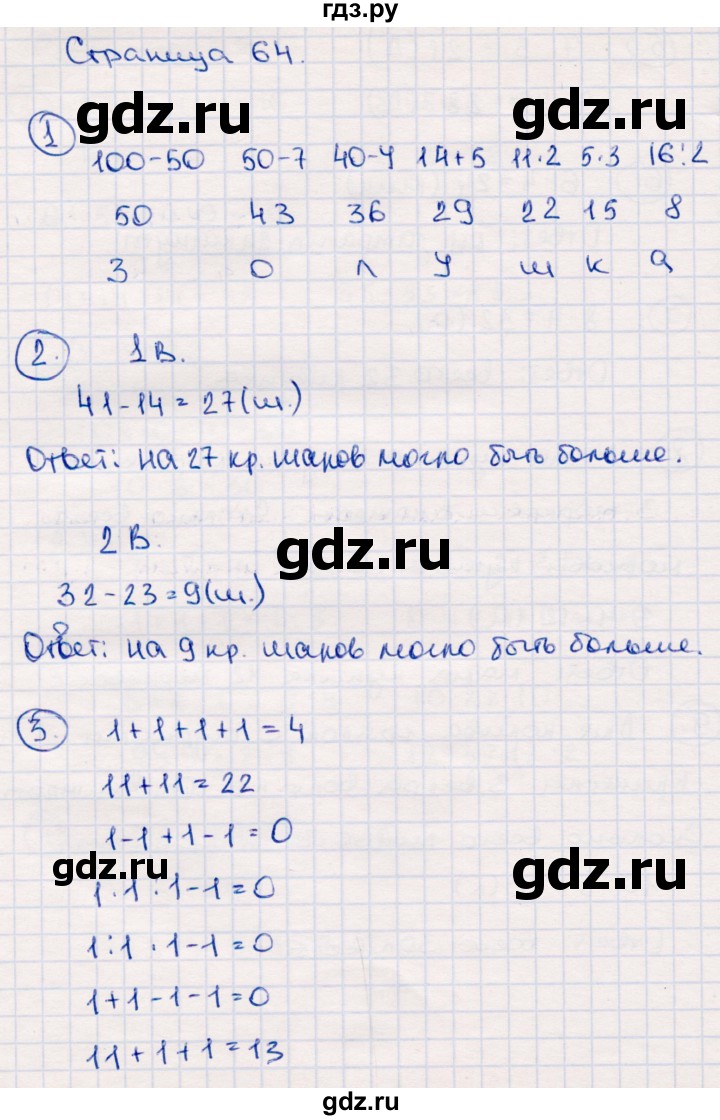 гдз.ру
Страница 64.
gdz.ru gdz.ru
1 100-50 50-7 40-4 14+5 11·2 5·3 16:2
50 43 36 29 22 15 8
З О Л У Ш К А
2. 1 в.
41-14=27(ш.)
Ответ: на 27 кр. шаров могло быть больше.
gdz.ru
2 в.
32-23=9(ш.)
Ответ: на 9 кр. шаров могло быть больше.
3. 1+1+1+1=4
11+11=22
1-1+1-1=0
gdz.ru gdz.ru
1·1:1-1=0
1:1·1-1=0
1+1-1-1=0
11+1+1=13
gdz.ru gdz.ru
gdz.ru